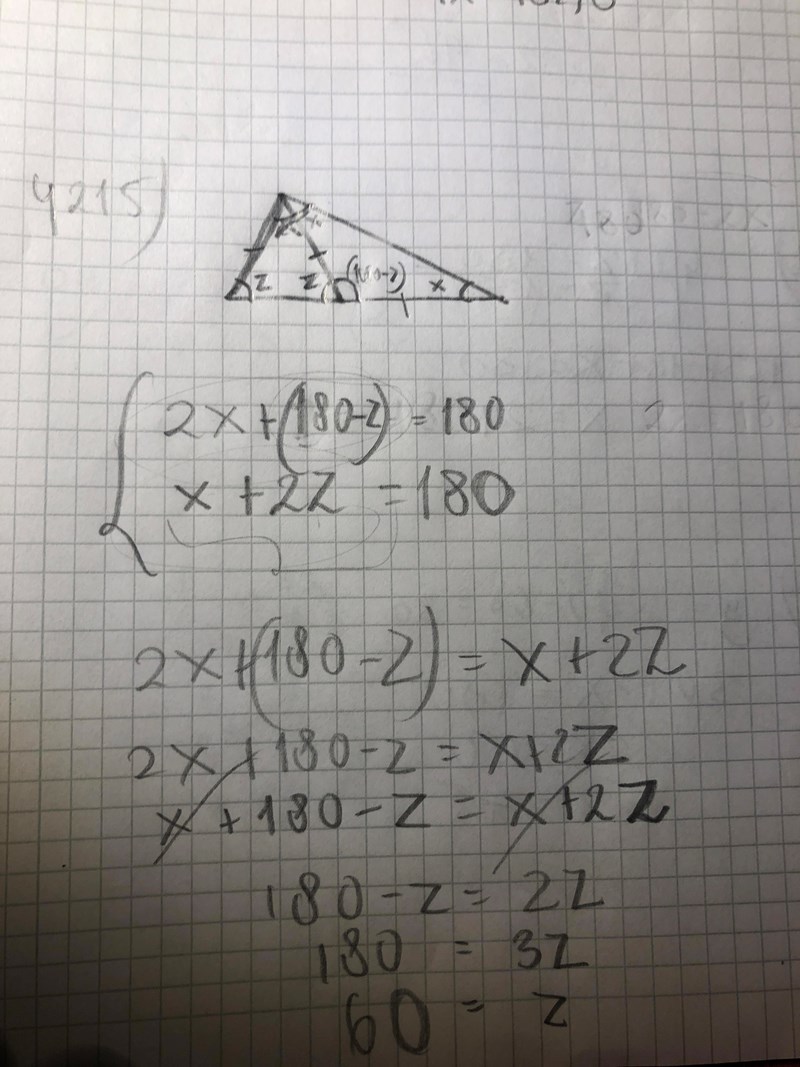 4215)
z z (180-z) x
2x+(180-z) = 180
x + 2z = 180
2x+(180-z) = x+2z
2x+180-z = x+2z
x+180-z = x+2z
180-z = 2z
180 = 3z
60 = z